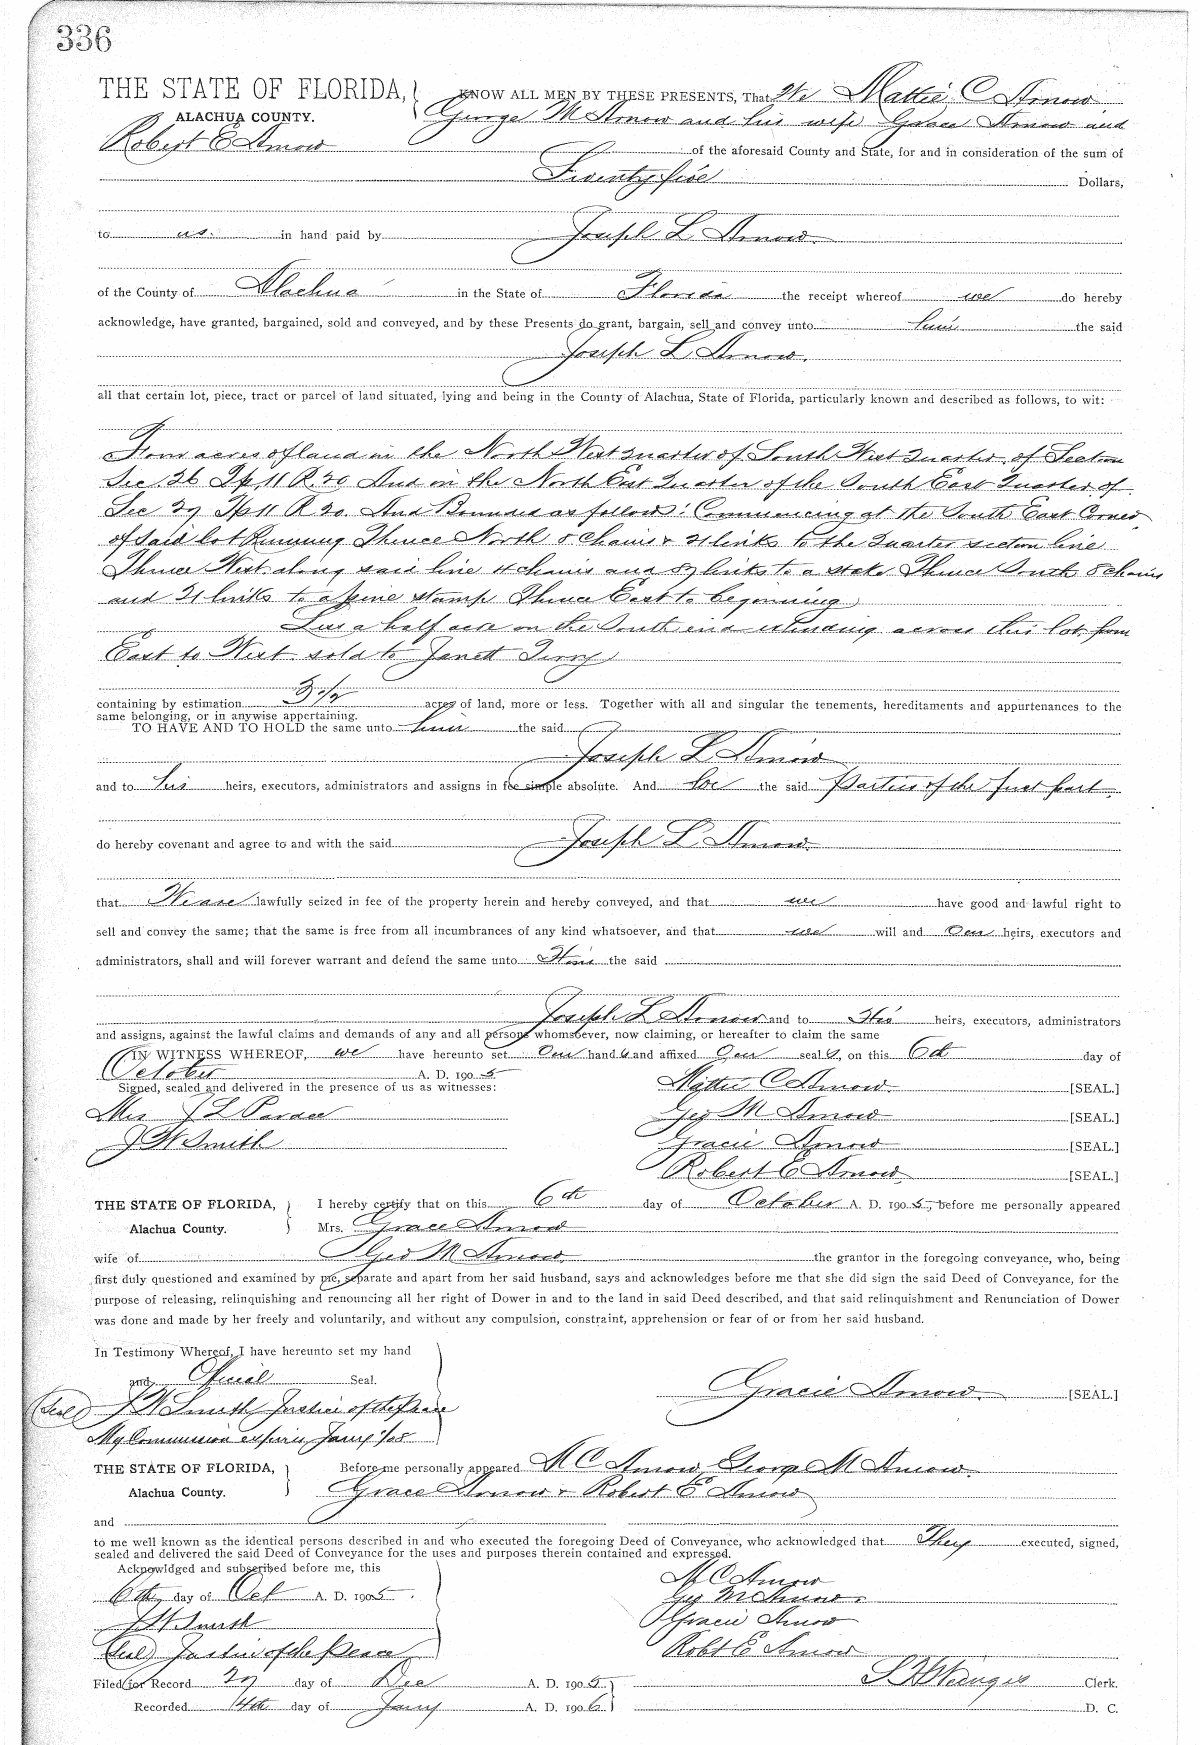 336
THE STATE OF FLORIDA, KNOW ALL MEN BY THESE PRESENTS, That We Mattie C Arnow
ALACHUA COUNTY. George M Arnow and his wife Grace Arnow and
Robert E Arnow of the aforesaid County and State, for and in consideration of the sum of
Twenty five Dollars,
to us. in hand paid by Joseph L Arnow.
of the County of Alachua in the State of Florida the receipt whereof we do hereby
acknowledge, have granted, bargained, sold and conveyed, and by these Presents do grant, bargain, sell and convey unto him the said
Joseph L Arnow.
all that certain lot, piece, tract or parcel of land situated, lying and being in the County of Alachua, State of Florida, particularly known and described as follows, to wit:
Four acres of land in the North West Quarter of South West Quarter of Section
Sec. 26 Tp 11 R. 20 And in the North East Quarter of the South East Quarter of
Sec 27 Tp 11 R 20. And Bounded as follows: Commencing at the South East Corner
of said lot Running Thence North 8 chains & 21 links to the Quarter section line
Thence West along said line 4 chains and 87 links to a stake Thence South 8 chains
and 21 links to a pine stump Thence East to beginning
Less a half acre on the South end extending across this lot from
East to West sold to Janett
containing by estimation 3 1/2 acres of land, more or less. Together with all and singular the tenements, hereditaments and appurtenances to the
same belonging, or in anywise appertaining.
TO HAVE AND TO HOLD the same unto him the said
Joseph L Arnow
and to his heirs, executors, administrators and assigns in fee simple absolute. And we the said Parties of the first part
do hereby covenant and agree to and with the said Joseph L Arnow.
that We are lawfully seized in fee of the property herein and hereby conveyed, and that we have good and lawful right to
sell and convey the same; that the same is free from all incumbrances of any kind whatsoever, and that we will and Our heirs, executors and
administrators, shall and will forever warrant and defend the same unto Him the said
Joseph L Arnow and to His heirs, executors, administrators
and assigns, against the lawful claims and demands of any and all persons whomsoever, now claiming, or hereafter to claim the same
IN WITNESS WHEREOF, we have hereunto set Our hands and affixed Our seals, on this 6th day of
October A. D. 1905
Signed, sealed and delivered in the presence of us as witnesses: Mattie C Arnow. [SEAL.]
Mrs J L Geo M Arnow [SEAL.]
J W Smith Gracie Arnow [SEAL.]
Robert E Arnow. [SEAL.]
THE STATE OF FLORIDA, I hereby certify that on this 6th day of October A. D. 1905, before me personally appeared
Alachua County. Mrs. Grace Arnow
wife of Geo M Arnow. the grantor in the foregoing conveyance, who, being
first duly questioned and examined by me, separate and apart from her said husband, says and acknowledges before me that she did sign the said Deed of Conveyance, for the
purpose of releasing, relinquishing and renouncing all her right of Dower in and to the land in said Deed described, and that said relinquishment and Renunciation of Dower
was done and made by her freely and voluntarily, and without any compulsion, constraint, apprehension or fear of or from her said husband.
In Testimony Whereof, I have hereunto set my hand
and Official Seal. Gracie Arnow. [SEAL.]
(Seal) J W Smith Justice of the Peace
My Commission expires Jany 1/08
THE STATE OF FLORIDA, Before me personally appeared M C Arnow, George M Arnow.
Alachua County. Grace Arnow & Robert E Arnow
and
to me well known as the identical persons described in and who executed the foregoing Deed of Conveyance, who acknowledged that They executed, signed,
sealed and delivered the said Deed of Conveyance for the uses and purposes therein contained and expressed.
Acknowldged and subscribed before me, this M C Arnow
6th day of Oct A. D. 1905. Geo M Arnow.
J W Smith Gracie Arnow
(Seal) Justice of the Peace Robt E Arnow
Filed for Record 27 day of Dec A. D. 1905 Clerk.
Recorded 14th day of Jany A. D. 1906 D. C.